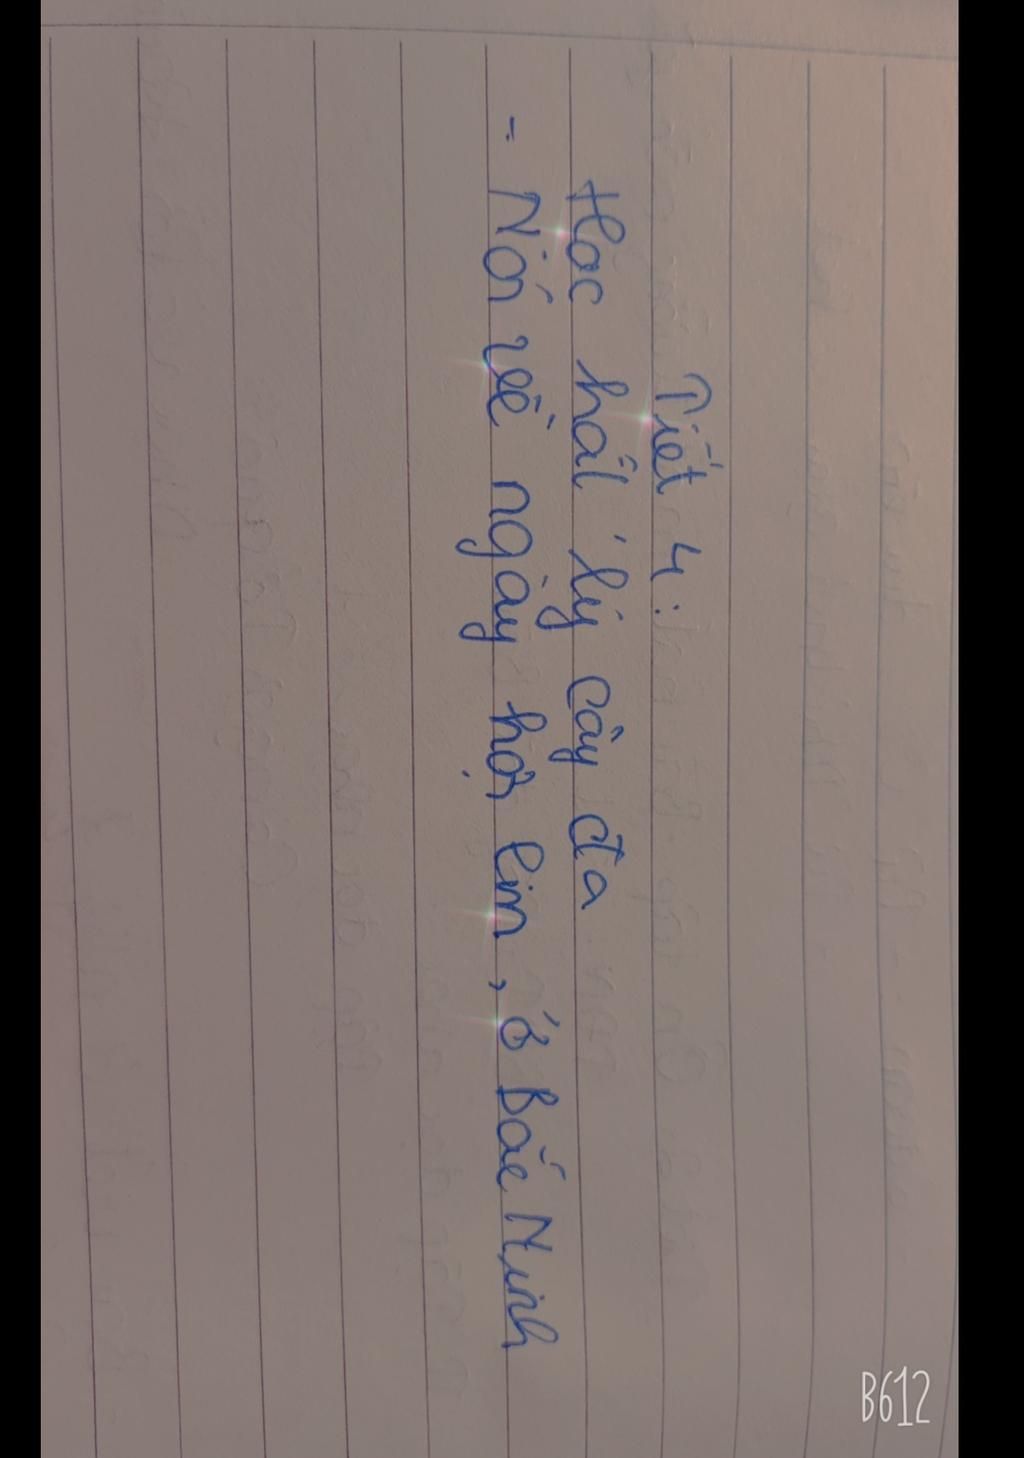 Tiết 4:
Học hát lý cây đa
- Nói về ngày hội lim, ở Bắc Ninh
B612